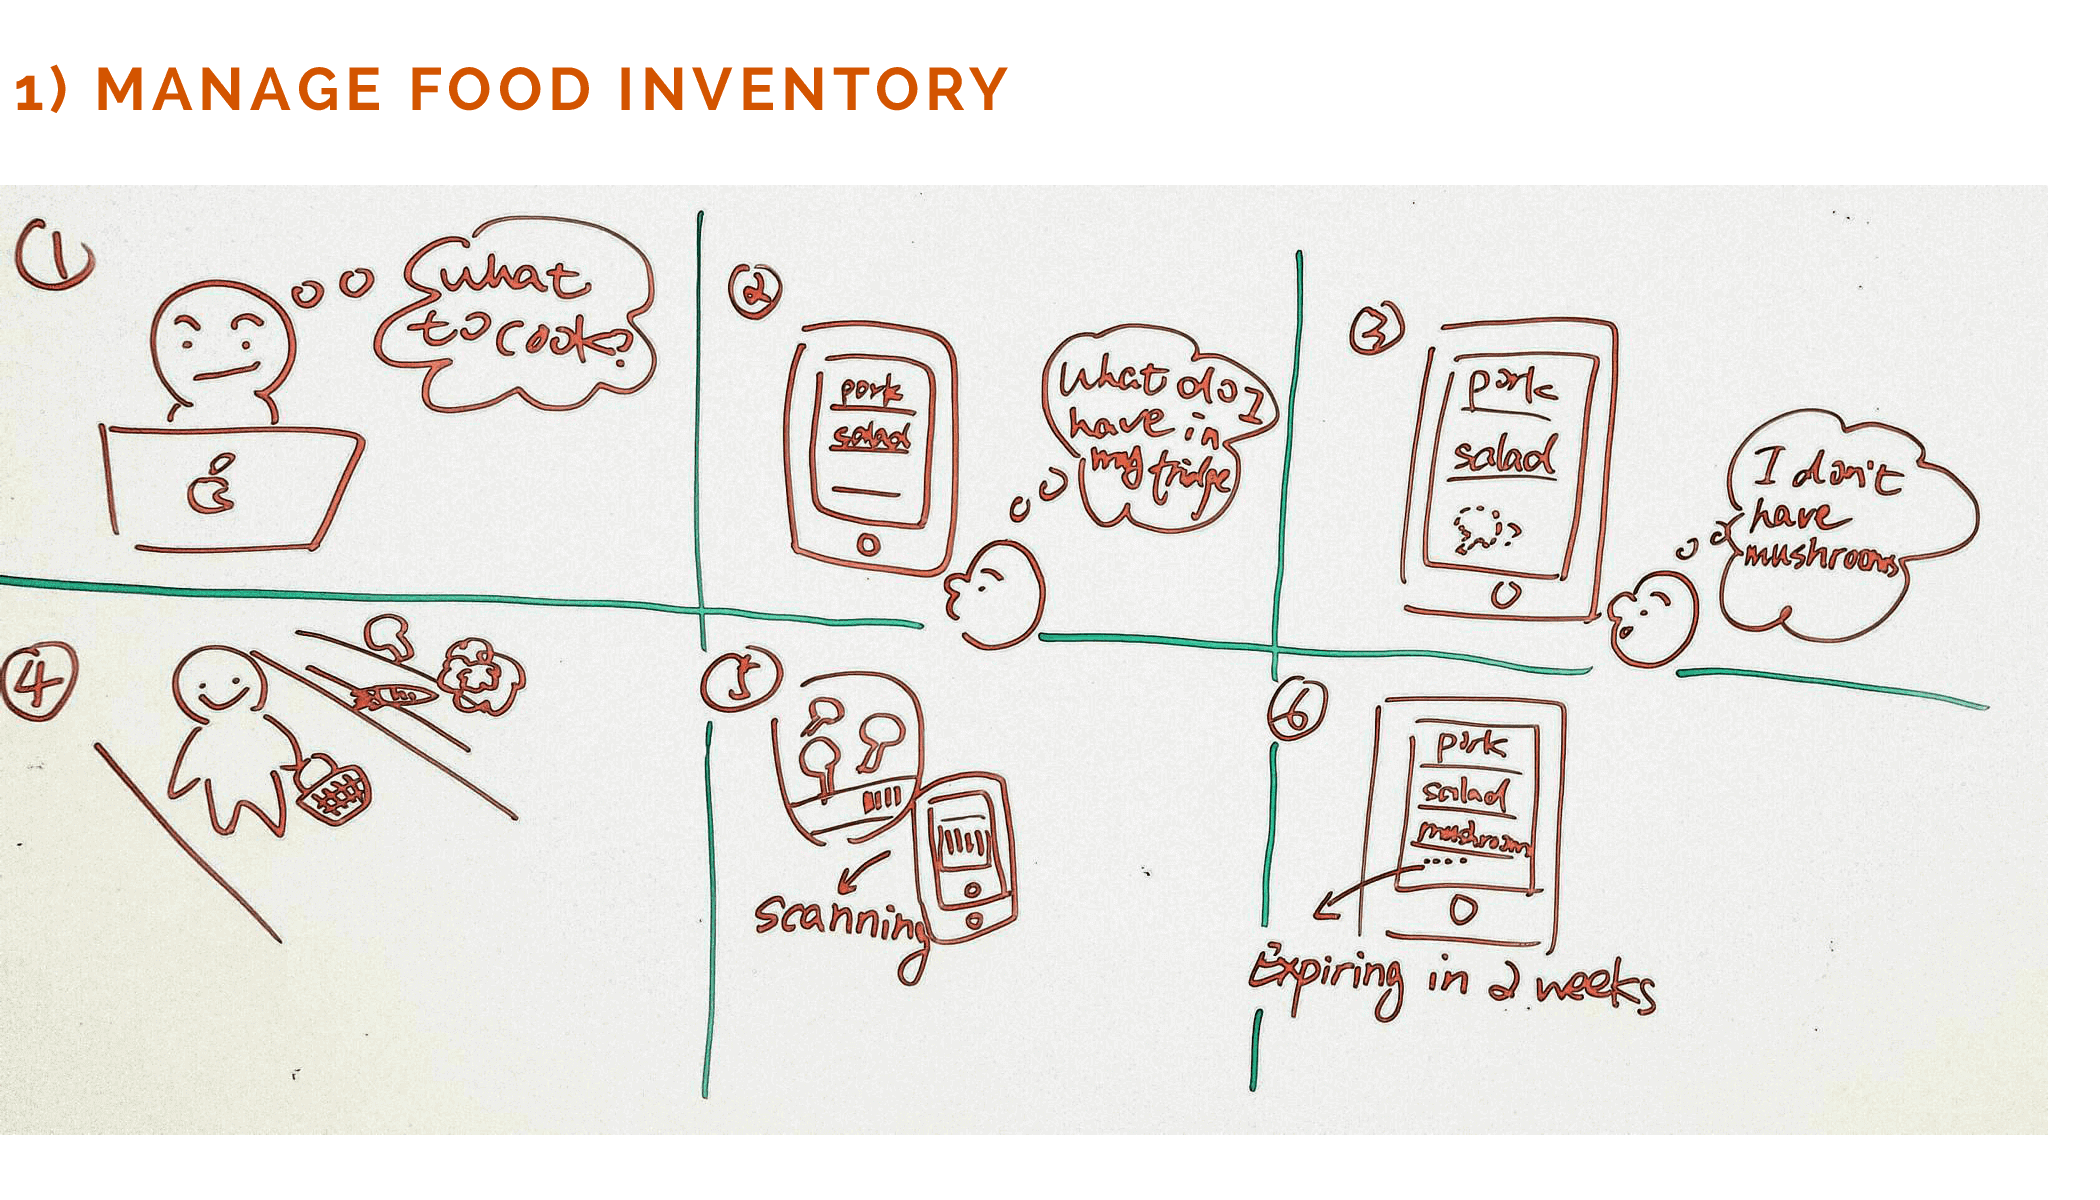 1) MANAGE FOOD INVENTORY
1
what
to cook?
2
pork
salad
What do I
have in
my fridge
3
pork
salad
I don't
have
mushrooms
4
5
scanning
6
pork
salad
mushroom
Expiring in 2 weeks